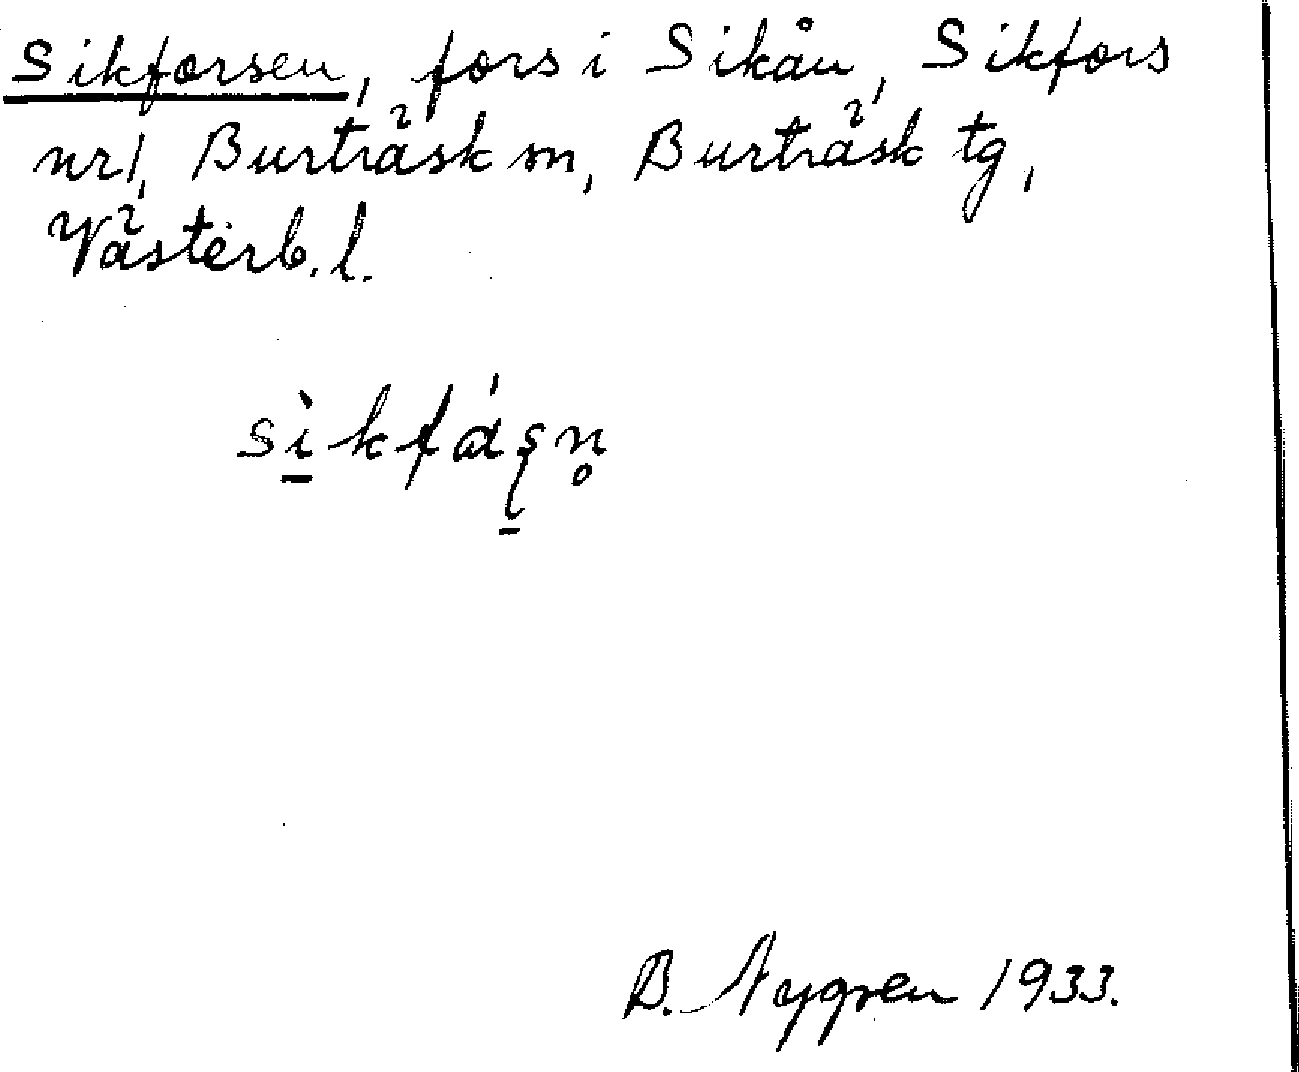 Sikforsen, fors i Sikån, Sikfors
nr 1, Burträsk sn, Burträsk tg,
Västerb. l.
sìkfáʂn̥
B. Nygren 1933.